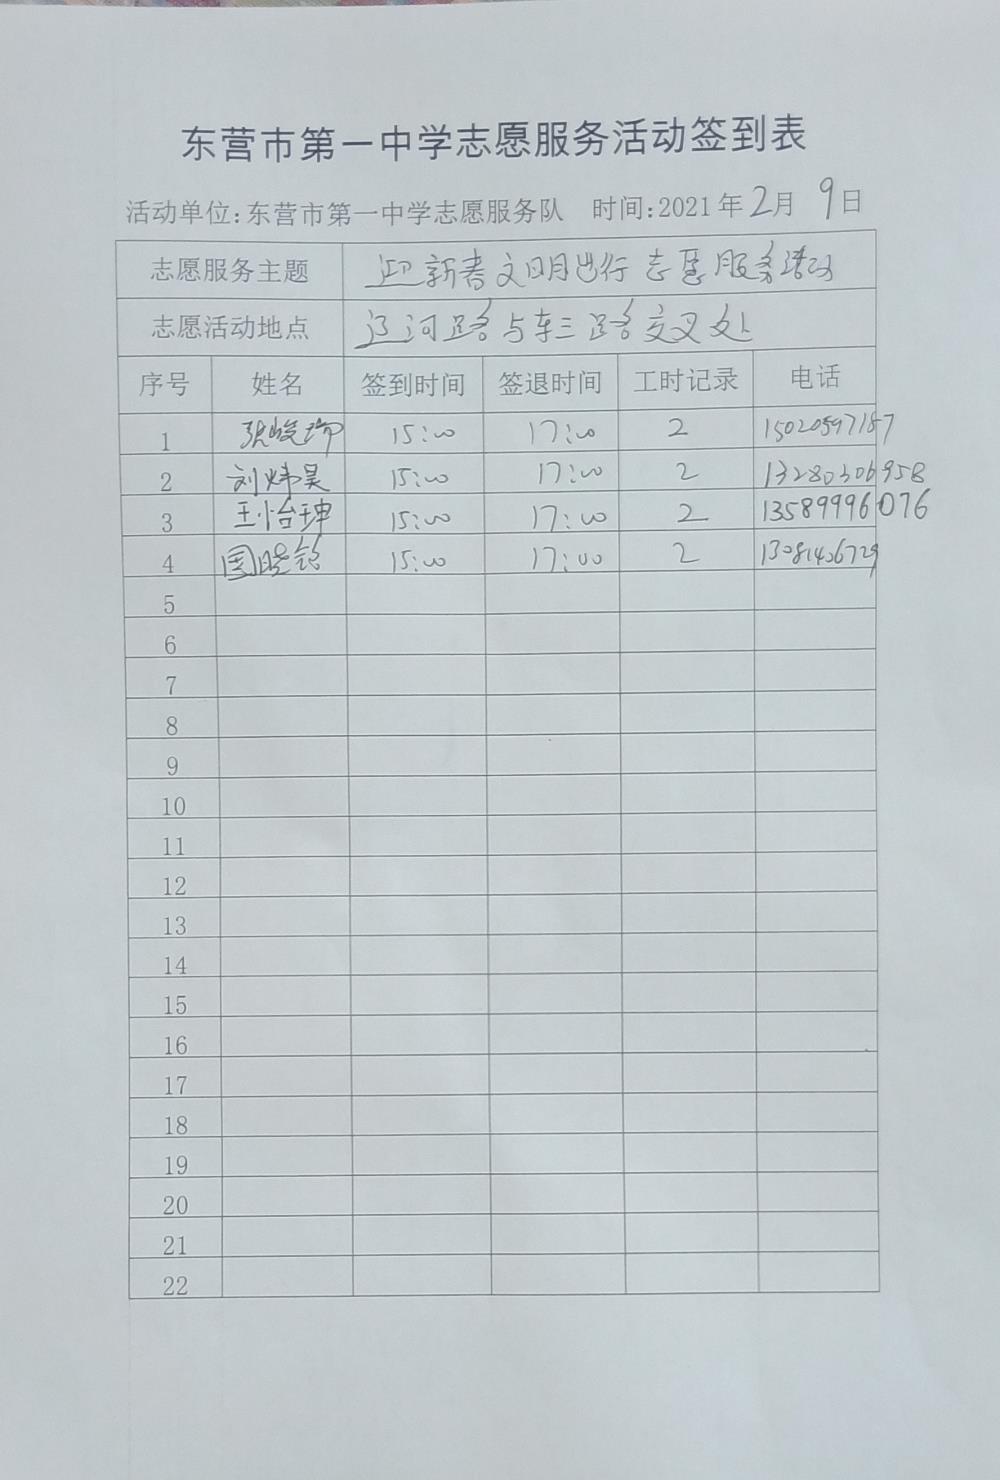 东营市第一中学志愿服务活动签到表
活动单位:东营市第一中学志愿服务队 时间:2021年2月9日
志愿服务主题 迎新春文明出行志愿服务活动
志愿活动地点 辽河路与东三路交叉处
序号 姓名 签到时间 签退时间 工时记录 电话
1 张峻瑜 15:00 17:00 2 15020597187
2 刘炜昊 15:00 17:00 2 13280306958
3 王怡珅 15:00 17:00 2 13589996076
4 国晓铭 15:00 17:00 2 13081406729
5
6
7
8
9
10
11
12
13
14
15
16
17
18
19
20
21
22